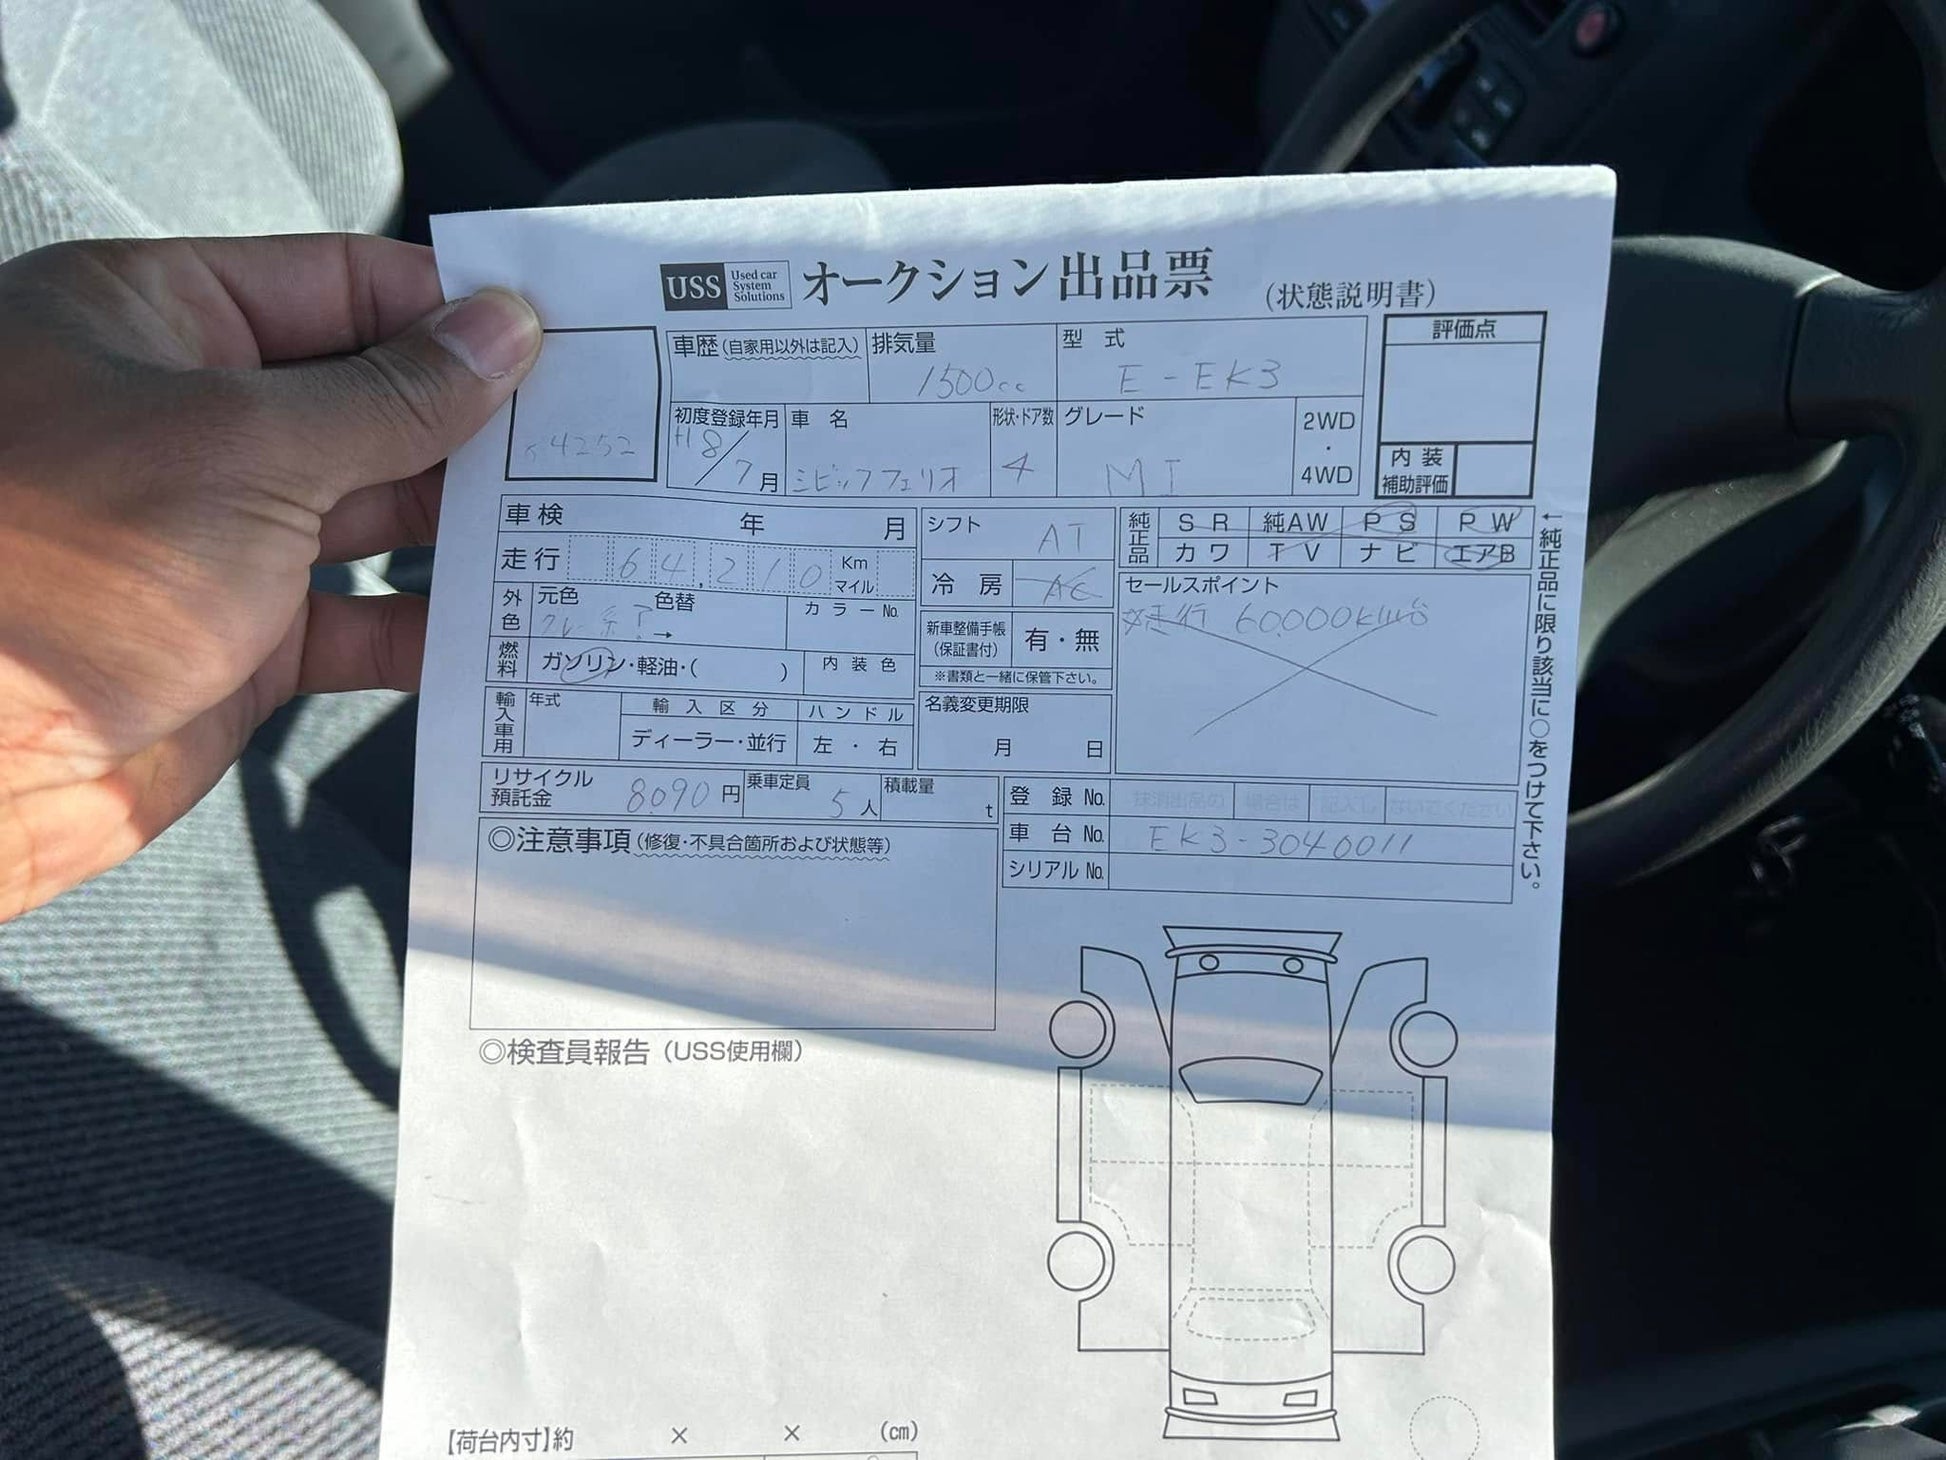 USS Used car System Solutions オークション出品票 (状態説明書)
車歴(自家用以外は記入) 排気量 1500cc 型式 E-EK3 評価点
54252
初度登録年月 H8/7月 車名 シビックフェリオ 形状・ドア数 4 グレード MI 2WD・4WD
内装補助評価
車検 年 月 シフト AT 純正品 SR 純AW PS PW
カワ TV ナビ エアB
走行 64,210 Km マイル 冷房 AC
←純正品に限り該当に○をつけて下さい。
外色 元色 色替 → カラーNo.
新車整備手帳(保証書付) 有・無
※書類と一緒に保管下さい。
セールスポイント
走行 60.000km台
燃料 ガソリン・軽油・( ) 内装色
輸入車用 年式 輸入区分 ハンドル
ディーラー・並行 左・右
名義変更期限 月 日
リサイクル預託金 8.090円 乗車定員 5人 積載量 t
登録No. 抹消出品の場合は記入しないでください
車台No. EK3-3040011
シリアルNo.
◎注意事項(修復・不具合箇所および状態等)
◎検査員報告(USS使用欄)
【荷台内寸】約 × × (cm)